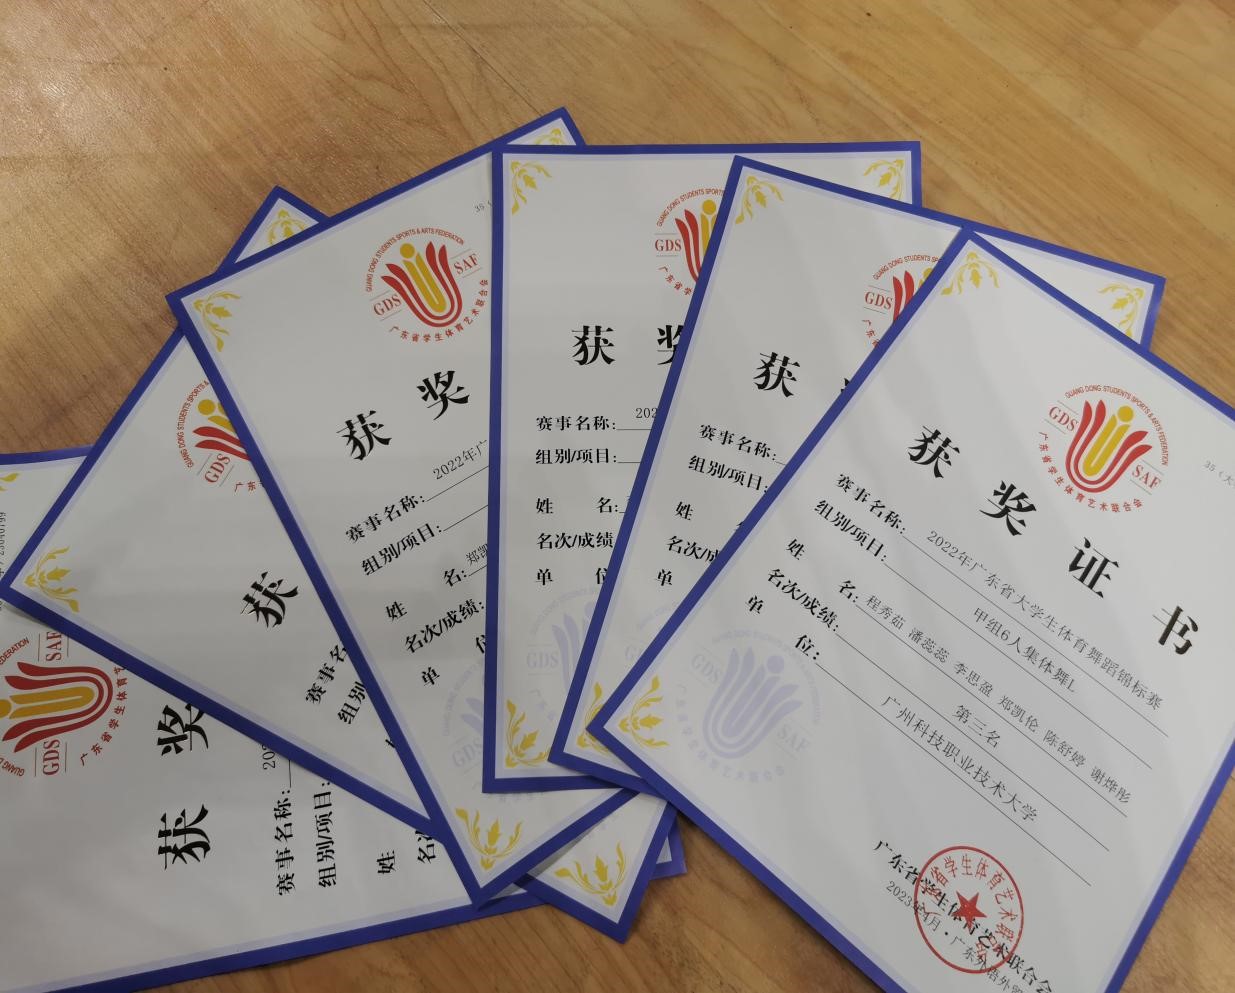 GUANG DONG STUDENTS SPORTS & ARTS FEDERATION
GDS
SAF
广东省学生体育艺术联合会
获奖证书
赛事名称:2022年广东省大学生体育舞蹈锦标赛
组别/项目:甲组6人集体舞L
姓 名:程秀茹 潘蕊蕊 李思盈 郑凯伦 陈舒婷 谢烨彤
名次/成绩:第三名
单 位:广州科技职业技术大学
广东省学生体育艺术联合会
2023年4月·广东外语外
GDS
获
赛事名称:
组别/项目:
姓
名次/成
单
GDS
获奖
赛事名称:202
组别/项目:
姓 名:
名次/成绩
单 位
GUANG DONG STUDENTS SPORTS & ARTS FEDERATION
GDS
SAF
广东省学生体育艺术联合会
获奖
赛事名称:2022年广
组别/项目:
姓 名:郑凯
名次/成绩:
单 位
GDS
广东
获
赛事名
组别/
GDS
SAF
广东省学生体
获奖
赛事名称:202
组别/项目:
姓 名